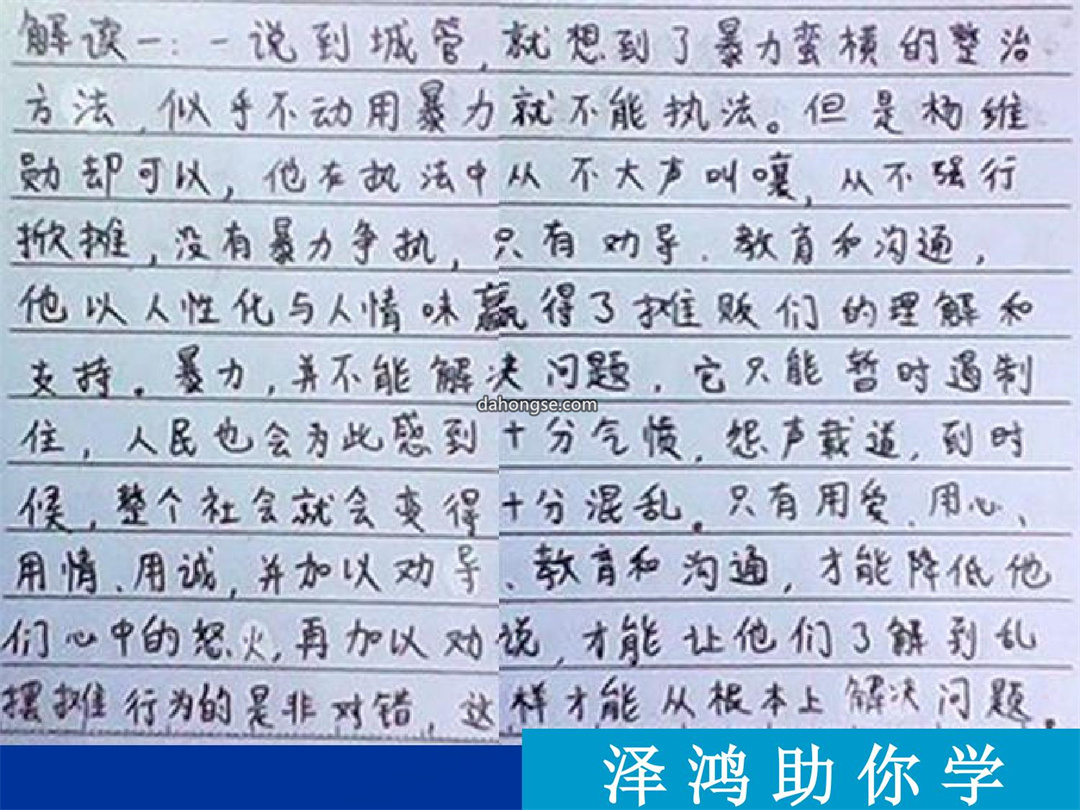 解读一：一说到城管，就想到了暴力蛮横的整治
方法，似乎不动用暴力就不能执法。但是杨维
勋却可以，他在执法中从不大声叫嚷，从不强行
掀摊，没有暴力争执，只有劝导、教育和沟通，
他以人性化与人情味赢得了摊贩们的理解和
支持。暴力，并不能解决问题，它只能暂时遏制
dahongse.com
住，人民也会为此感到十分气愤，怨声载道，到时
候，整个社会就会变得十分混乱。只有用爱、用心、
用情、用诚，并加以劝导、教育和沟通，才能降低他
们心中的怒火，再加以劝说，才能让他们了解到乱
摆摊行为的是非对错，这样才能从根本上解决问题。
泽鸿助你学